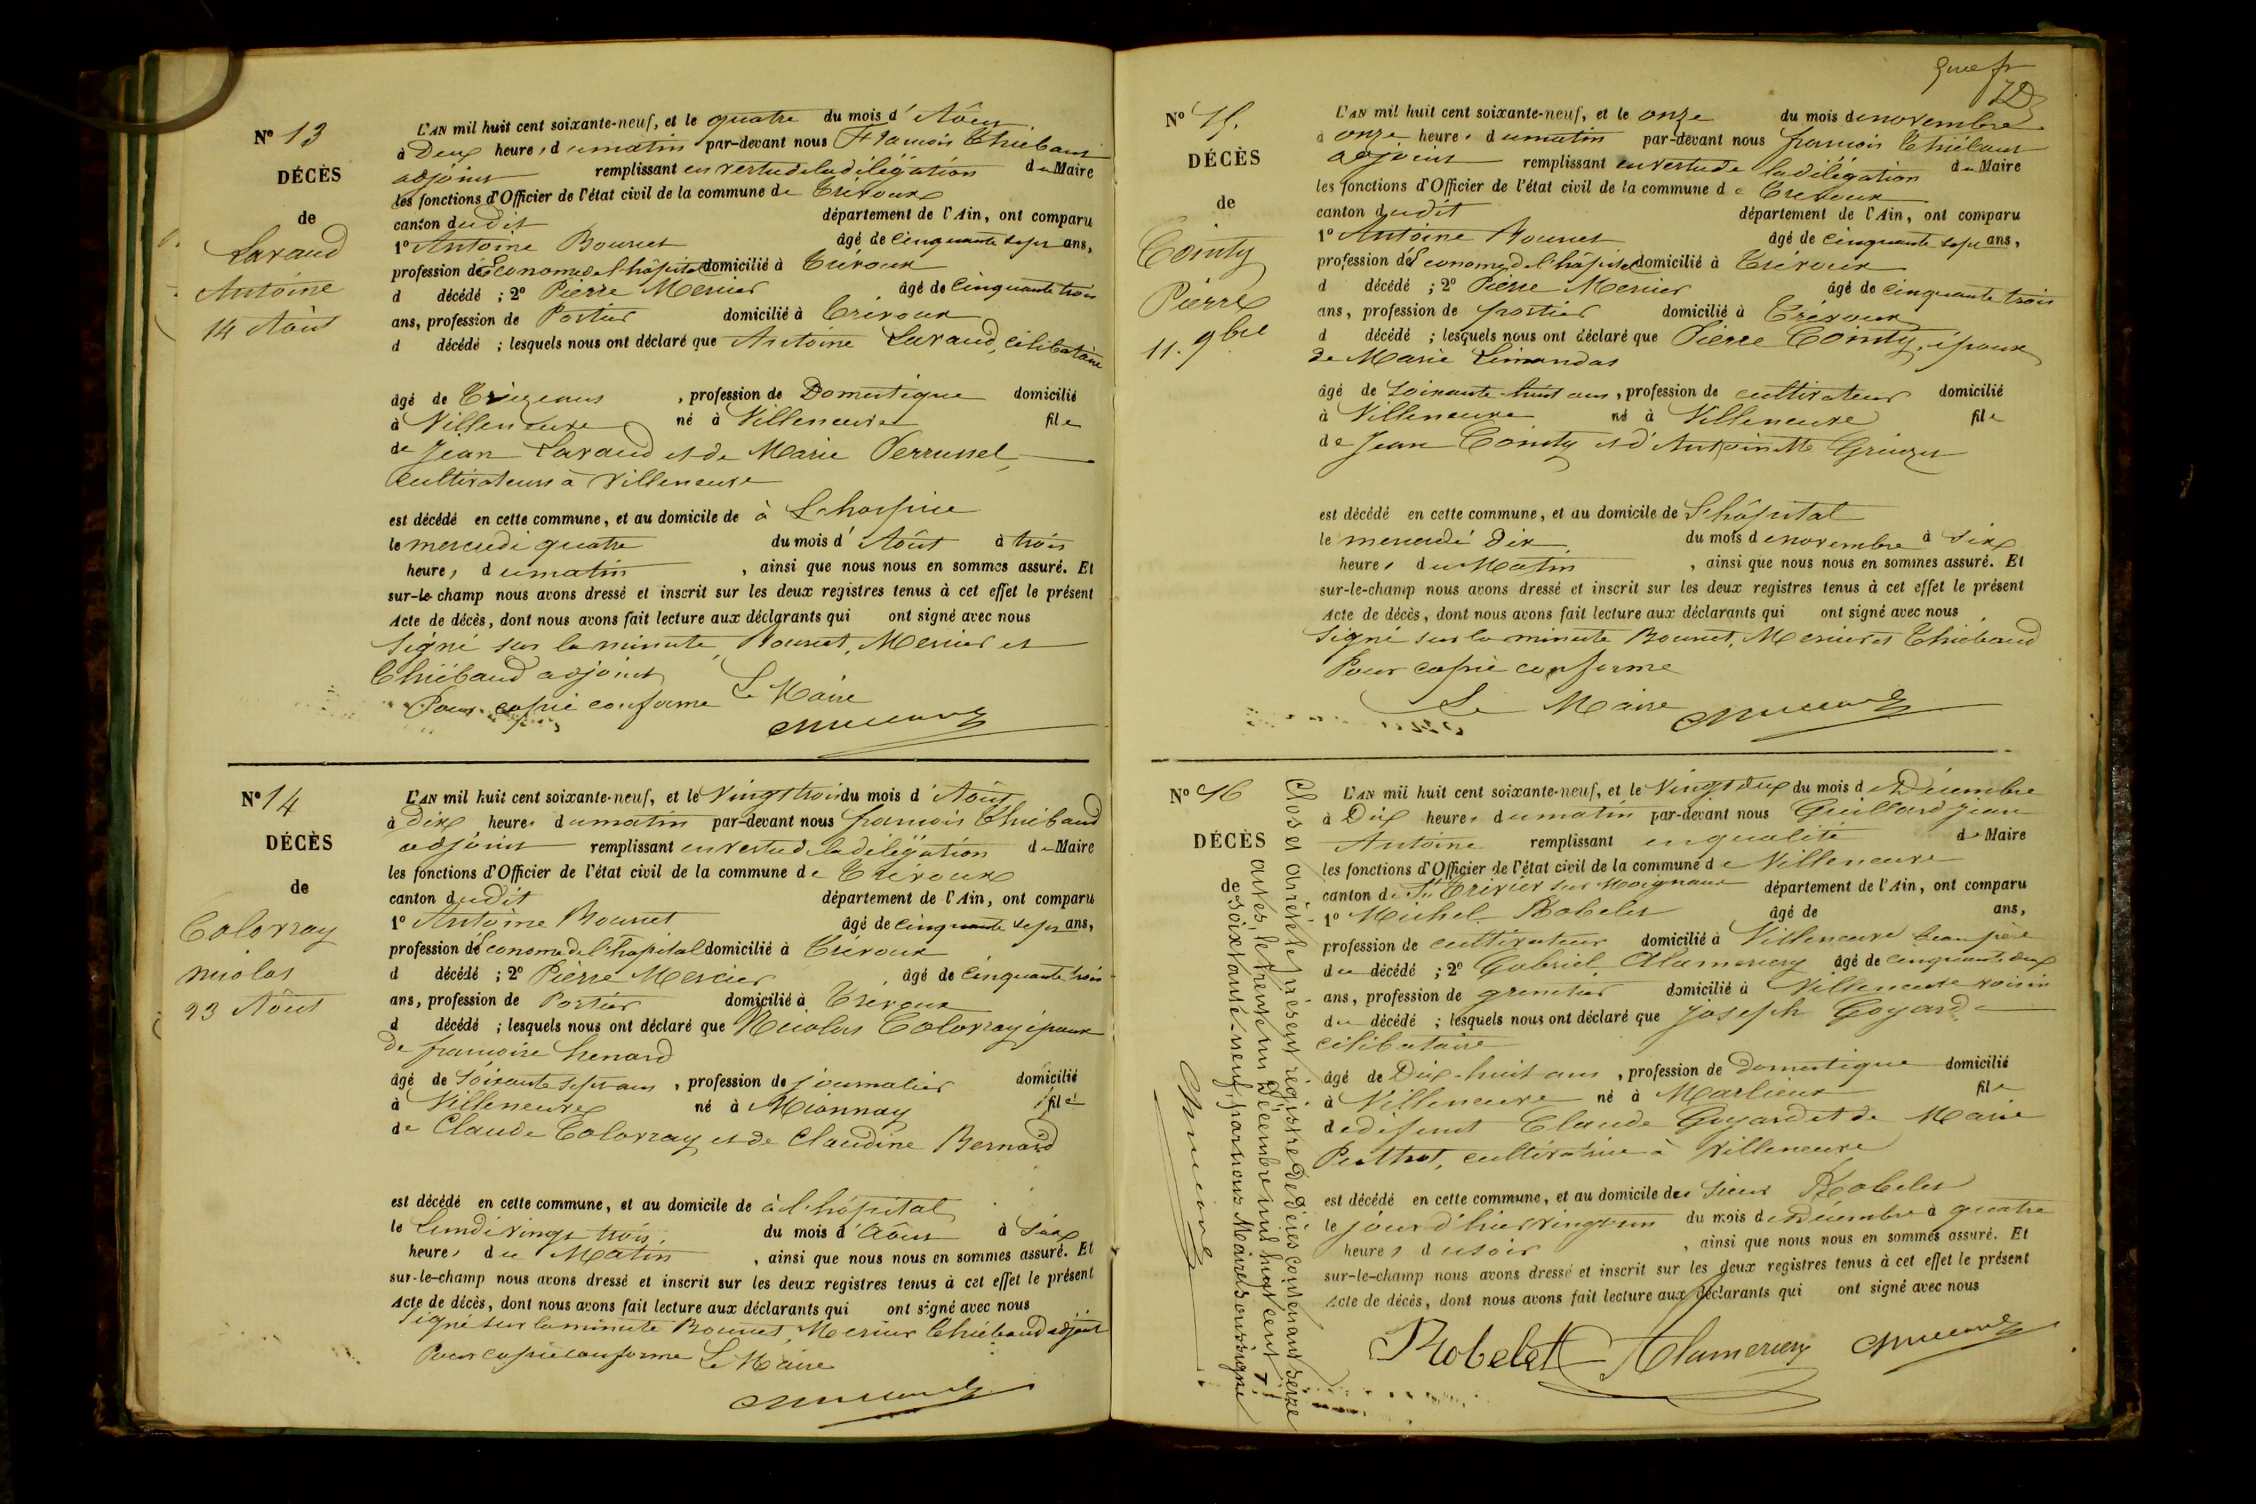 N° 13
DÉCÈS
de
Lavaud
Antoine
14 Août
L'AN mil huit cent soixante-neuf, et le quatre du mois d'Aôut
à Deux heures du matin par-devant nous François Thiébaud
adjoint remplissant en vertu de la délégation du Maire
les fonctions d'Officier de l'état civil de la commune de Trévoux
canton dudit département de l'Ain, ont comparu
1° Antoine Bounet âgé de cinquante sept ans,
profession de Econome de l'hôpital domicilié à Trévoux
d décédé ; 2° Pierre Mercier âgé de cinquante trois
ans, profession de Portier domicilié à Trévoux
d décédé ; lesquels nous ont déclaré que Antoine Lavaud, célibataire
âgé de Treize ans , profession de Domestique domicilié
à Villeneuve né à Villeneuve fils
de Jean Lavaud et de Marie Perrussel
cultivateurs à Villeneuve
est décédé en cette commune, et au domicile de à L'hospice
le mercredi quatre du mois d'Aôut à trois
heures du matin , ainsi que nous nous en sommes assuré. Et
sur-le-champ nous avons dressé et inscrit sur les deux registres tenus à cet effet le présent
Acte de décès, dont nous avons fait lecture aux déclarants qui ont signé avec nous
Signé sur la minute, Bounet, Mercier et
Thiébaud adjoint
Pour copie conforme Le Maire
N° 14
DÉCÈS
de
Colovray
nicolas
23 Aôut
L'AN mil huit cent soixante-neuf, et le Vingt trois du mois d'Aôut
à Dix heures du matin par-devant nous françois Thiébaud
adjoint remplissant en vertu de la délégation du Maire
les fonctions d'Officier de l'état civil de la commune de Trévoux
canton dudit département de l'Ain, ont comparu
1° Antoine Bounet âgé de cinquante sept ans,
profession de Econome de l'hopital domicilié à Trévoux
d décédé ; 2° Pierre Mercier âgé de cinquante trois
ans, profession de Portier domicilié à Trévoux
d décédé ; lesquels nous ont déclaré que Nicolas Colovray époux
de françoise henard
âgé de Soixante sept ans , profession de journalier domicilié
à Villeneuve né à Mionnay fils
de Claude Colovray et de Claudine Bernard
est décédé en cette commune, et au domicile de à l'hôpital
le Lundi vingt trois, du mois d'Aôut à Six
heures du Matin , ainsi que nous nous en sommes assuré. Et
sur-le-champ nous avons dressé et inscrit sur les deux registres tenus à cet effet le présent
Acte de décès, dont nous avons fait lecture aux déclarants qui ont signé avec nous
Signé sur la minute Bounet, Mercier Thiébaud adjoint
Pour copie conforme Le Maire
N° 15.
DÉCÈS
de
Cointy
Pierre
11. 9bre
L'AN mil huit cent soixante-neuf, et le onze du mois de novembre
à onze heures du matin par-devant nous françois Thiébaud
adjoint remplissant en vertu de la délégation du Maire
les fonctions d'Officier de l'état civil de la commune de Trévoux
canton dudit département de l'Ain, ont comparu
1° Antoine Bounet âgé de cinquante sept ans,
profession de Econome de l'hôpital domicilié à Trévoux
d décédé ; 2° Pierre Mercier âgé de cinquante trois
ans, profession de portier domicilié à Trévoux
d décédé ; lesquels nous ont déclaré que Pierre Cointy, époux
de Marie Limandas
âgé de soixante-huit ans, profession de cultivateur domicilié
à Villeneuve né à Villeneuve fils
de Jean Cointy et d'Antoinette
est décédé en cette commune, et au domicile de L'hôpital
le mercredi dix du mois de novembre à Six
heures du Matin , ainsi que nous nous en sommes assuré. Et
sur-le-champ nous avons dressé et inscrit sur les deux registres tenus à cet effet le présent
Acte de décès, dont nous avons fait lecture aux déclarants qui ont signé avec nous
Signé sur la minute Bounet, Mercier et Thiébaud
Pour copie conforme
Le Maire
N° 16
DÉCÈS
de
Clos et arrêté le présent registre de Décès contenant seize
actes, le trente un Décembre mil huit cent
soixante-neuf, par nous Maire soussigné
L'AN mil huit cent soixante-neuf, et le Vingt deux du mois de Décembre
à Dix heures du matin par-devant nous Guillard jean
Antoine remplissant en qualité de Maire
les fonctions d'Officier de l'état civil de la commune de Villeneuve
canton de St Trivier sur Moignans département de l'Ain, ont comparu
1° Michel Robelet âgé de ans,
profession de cultivateur domicilié à Villeneuve beau père
du décédé ; 2° Gabriel Alamercery âgé de cinquante deux
ans, profession de domicilié à Villeneuve voisin
du décédé ; lesquels nous ont déclaré que joseph Goyard
célibataire
âgé de Dix-huit ans , profession de Domestique domicilié
à Villeneuve né à Marlieux fils
de defunt Claude Goyard et de Marie
Perthot, cultivatrice à Villeneuve
est décédé en cette commune, et au domicile du sieur Robelet
le jour d'hier vingt-un du mois de Décembre à quatre
heures du soir , ainsi que nous nous en sommes assuré. Et
sur-le-champ nous avons dressé et inscrit sur les deux registres tenus à cet effet le présent
Acte de décès, dont nous avons fait lecture aux déclarants qui ont signé avec nous
Robelet Alamercery